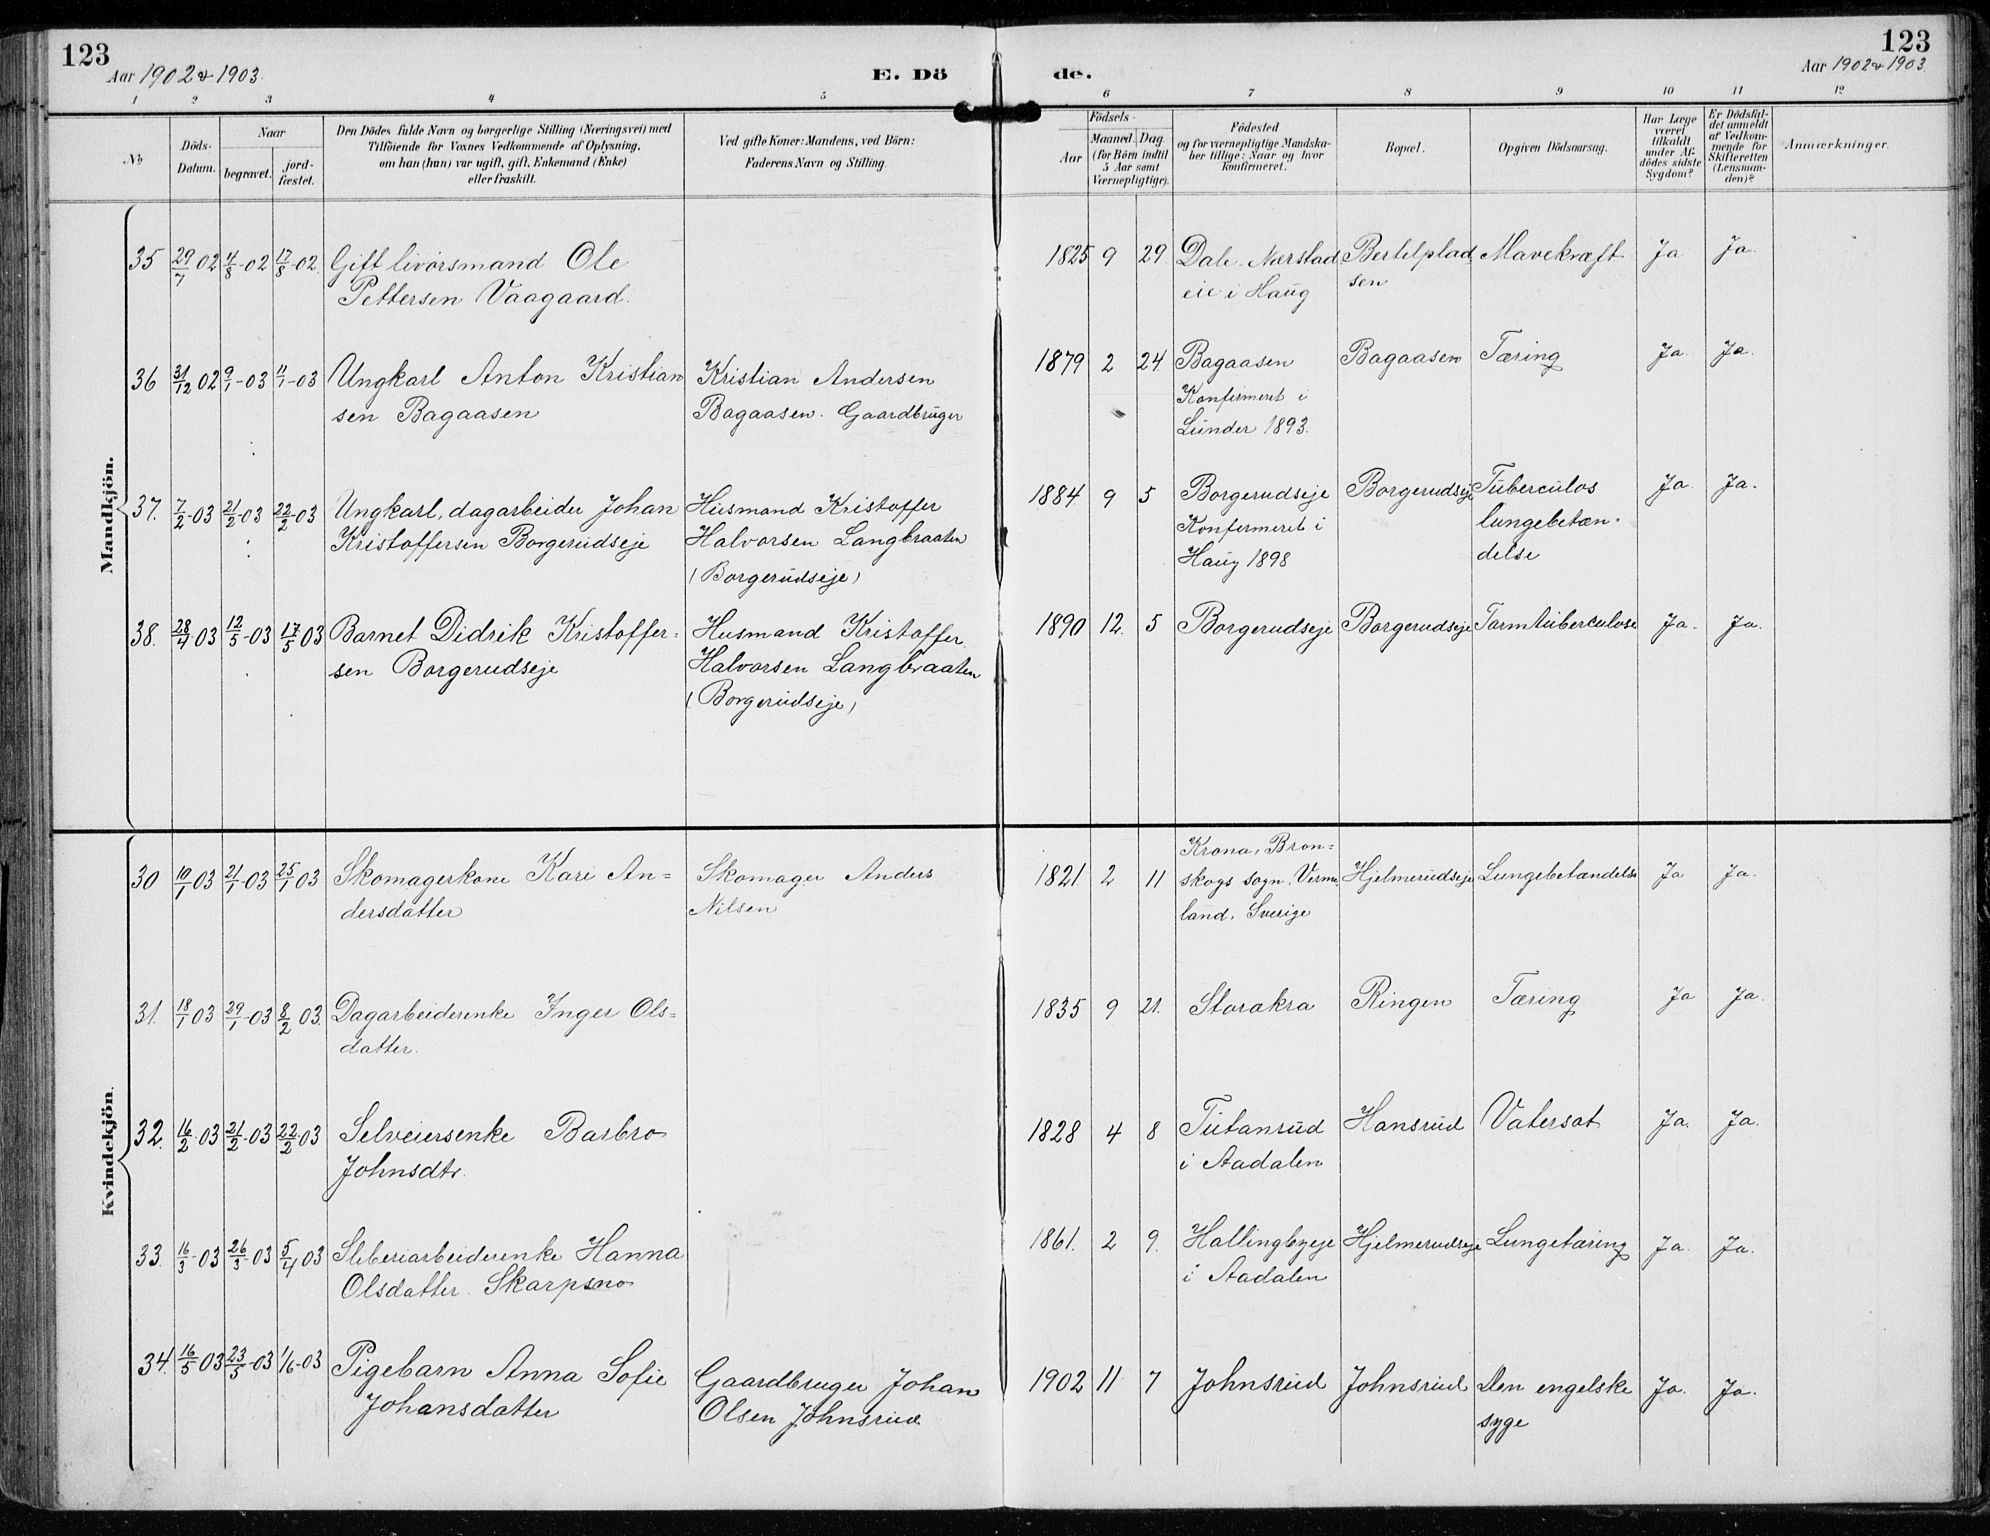 123
Aar 1902 & 1903.
E. Dö
de.
123
Aar 1902 & 1903
1 2 3 4 5 6 7 8 9 10 11 12
No
Döds-
Datum.
Naar
begravet.
jord-
fæstet.
Den Dödes fulde Navn og borgerlige Stilling (Næringsvei) med
Tilföiende for Voxnes Vedkommende af Oplysning,
om han (hun) var ugift, gift, Enkemand (Enke)
eller fraskilt.
Ved gifte Koner: Mandens, ved Börn:
Faderens Navn og Stilling.
Födsels-
Aar
Maaned. Dag.
(for Börn indtil
5 Aar samt
Værnepligtige).
Födested
og for værnepligtige Mandska-
ber tillige: Naar og hvor
konfirmeret.
Bopæl.
Opgiven Dödsaarsag.
Har Læge
været
tilkaldt
under Af-
dödes sidste
Sygdom?
Er Dödsfal-
det anmeldt
af Vedkom-
mende for
Skifteretten
(Lensman-
den)?
Anmærkninger.
Mandkjön.
35 29/7 02 4/8-02 17/8-02. Gift livörsmand Ole 1825 9 29 Dale-Nærstad Bertelplad Mavekræft Ja Ja.
Pettersen Vaagaard. eie i Haug sen
36 31/12 02 9/1-03 11/1-03 Ungkarl Anton Kristian Kristian Andersen 1879 2 24 Bagaasen Bagaasen Tæring Ja Ja.
sen Bagaasen Bagaasen. Gaardbruger Konfirmeret i
Lunder 1893.
37. 7/2-03 21/2-03 22/2-03 Ungkarl, dagarbeider Johan Husmand Kristoffer 1884 9 5 Borgerudseje Borgerudseje Tuberculos Ja Ja.
Kristoffersen Borgerudseje Halvorsen Langbraaten Konfirmeret i lungebetæn-
(Borgerudseje) Haug 1898 delse
38. 28/4 03 12/5-03 17/5 03 Barnet Didrik Kristoffer- Husmand Kristoffer 1890 12. 5 Borgerudseje Borgerudseje Tarmtuberculose Ja. Ja.
sen Borgerudseje Halvorsen Langbraaten
(Borgerudseje)
Kvindekjön.
30 10/1 03 21/1-03 25/1 03 Skomagerkone Kari An= Skomager Anders 1821 2 11 Krona, Bron=
dersdatter Nilsen skogs sogn. Verme Hjelmerudseje Lungebetændelse Ja Ja.
land, Sverige
31. 18/1 03 29/1-03 8/2 03. Dagarbeiderenke Inger Ols= 1835 9 21. Storakra Ringen Tæring Ja Ja.
datter.
32. 16/2 03 21/2-03 22/2 03 Selveiersenke Barbro 1828 4 8 Tutanrud Hansrud Vatersot Ja. Ja.
Johnsdtr. i Aadalen
33. 16/3-03 26/3-03 5/4 03 Sliberiarbeiderenke Hanna 1861. 2 9. Hallingbyeje Hjelmerudseje Lungetæring Ja. Ja.
Olsdatter. Skarpsno i Aadalen
34. 16/5 03 23/5-03 1/6-03 Pigebarn Anna Sofie Gaardbruger Johan 1902 11 7 Johnsrud Johnsrud Den engelske Ja. Ja.
Johansdatter Olsen Johnsrud syge